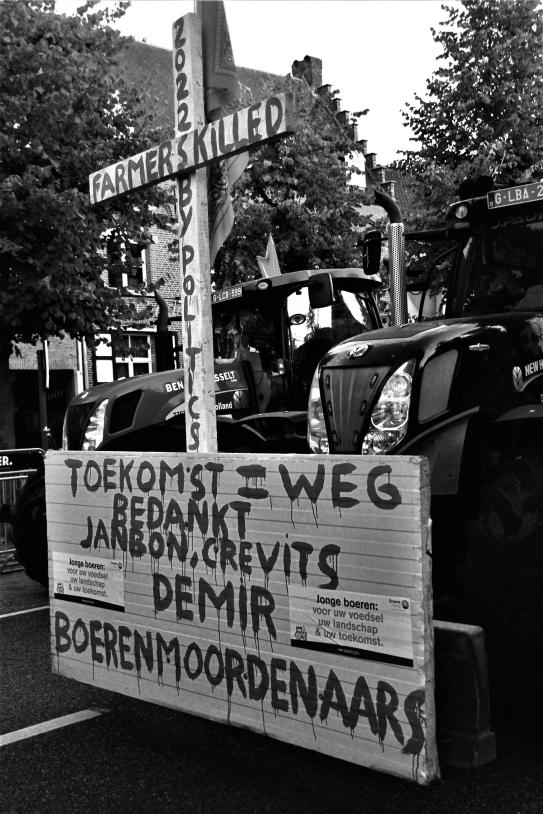 2022
FARMERS KILLED
BY POLITICS
G-LBA-2
G-LCB-599
NEW H
TOEKOMST = WEG
BEDANKT
JANBON, CREVITS
DEMIR
BOERENMOORDENAARS
Jonge boeren:
voor uw voedsel
uw landschap
& uw toekomst.
Jonge boeren:
voor uw voedsel
uw landschap
& uw toekomst.